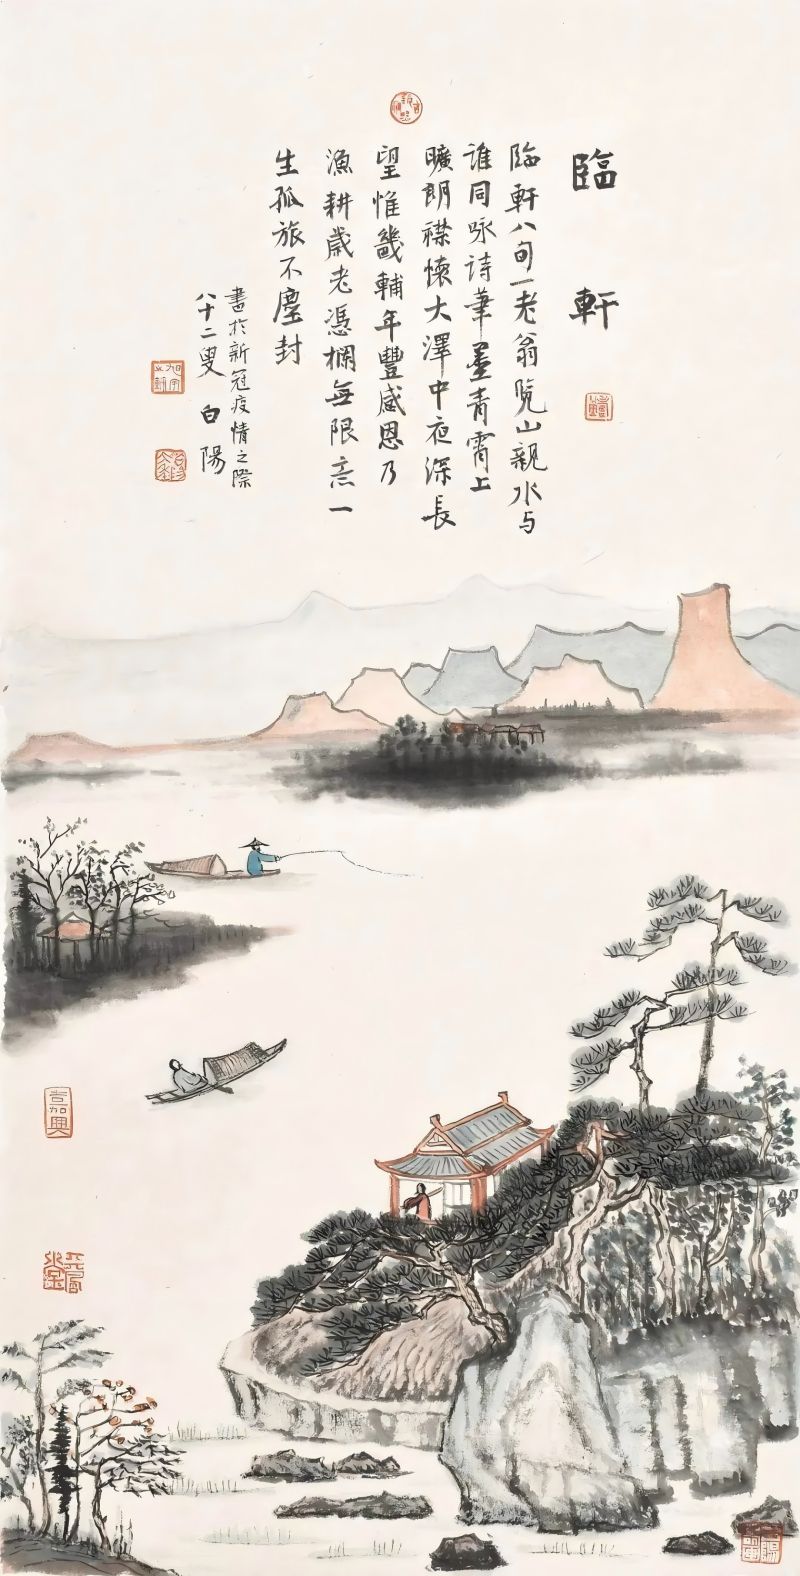 臨軒
臨軒八句一老翁覽山親水与
誰同咏诗華墨青霄上
曠朗襟懷大澤中夜深長
望惟畿輔年豐感恩乃
漁耕歲老憑欄無限意一
生孤旅不塵封
畫於新冠疫情之際
八十二叟 白陽
吉加興